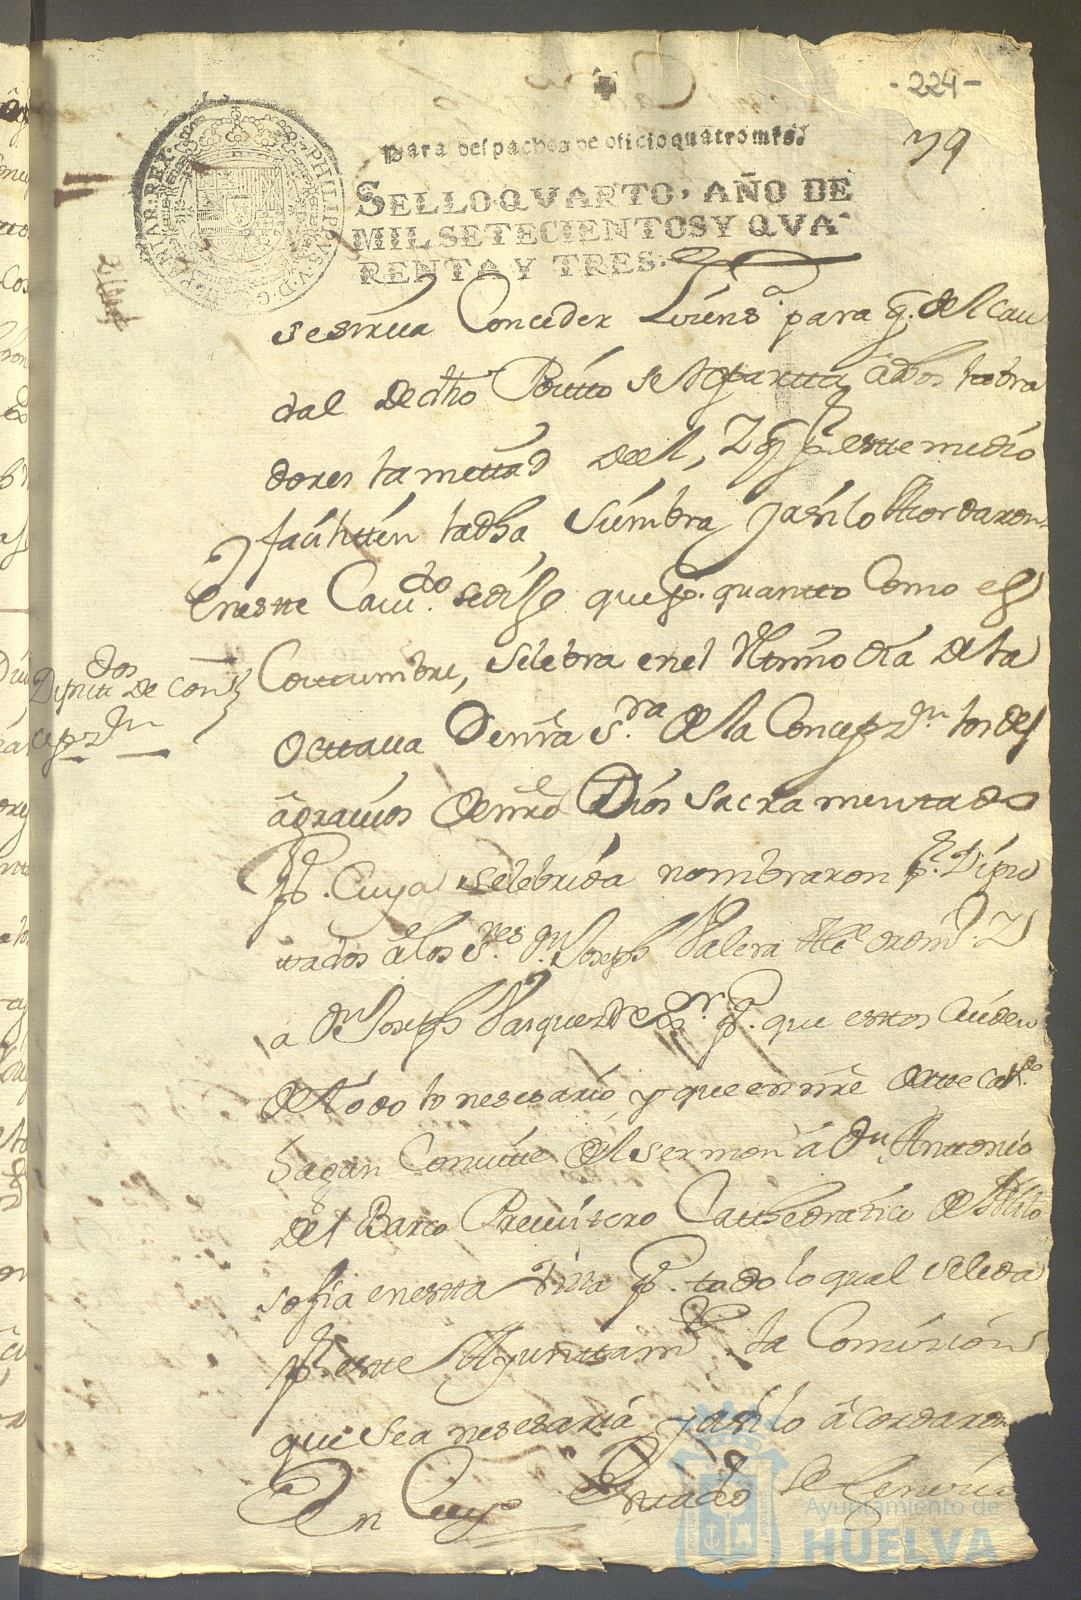 - 224 -
39
Para despachos de oficio quatro mrs.
SELLO QVARTO, AÑO DE
MIL SETECIENTOS Y QVA
RENTA Y TRES.
PHILIPPUS V D G
HISPANIAR REX
se sirva Conceder Lizens.a para q. del cau
dal de dho Positto se reparta a dhos labra
dores la mettad del, y q p. este medio
facilitten la dha siembra y asi lo Acordaron
En este Cavildo se dijo que p. quantto Como es
Dipu.tt dos de Con
cepz.on
Costumbre, selebra en el Ultimo dia de la
Octtava De nra S.ra de la Concepz.on los des
agravios de nro Dios Sacramentado
P. Cuya selebrida nombraron p. Dipu
tados a los S.res Dn Joseph Valera Alc.e ordin.o y
a Dn Joseph Vasquez p. que estos Cuiden
de todo lo nesesario y que en nre de este Cav.do
hagan Convitte del sermon a Dn Antonio
del Barco Presvitero Cathedratico de Filo
sofia en esta villa p. todo lo qual se le da
p. este Ayuntam.to la Comision
que sea nesesaria y asi lo acordaron
En Cuyo esttado se
Ayuntamiento de
HUELVA